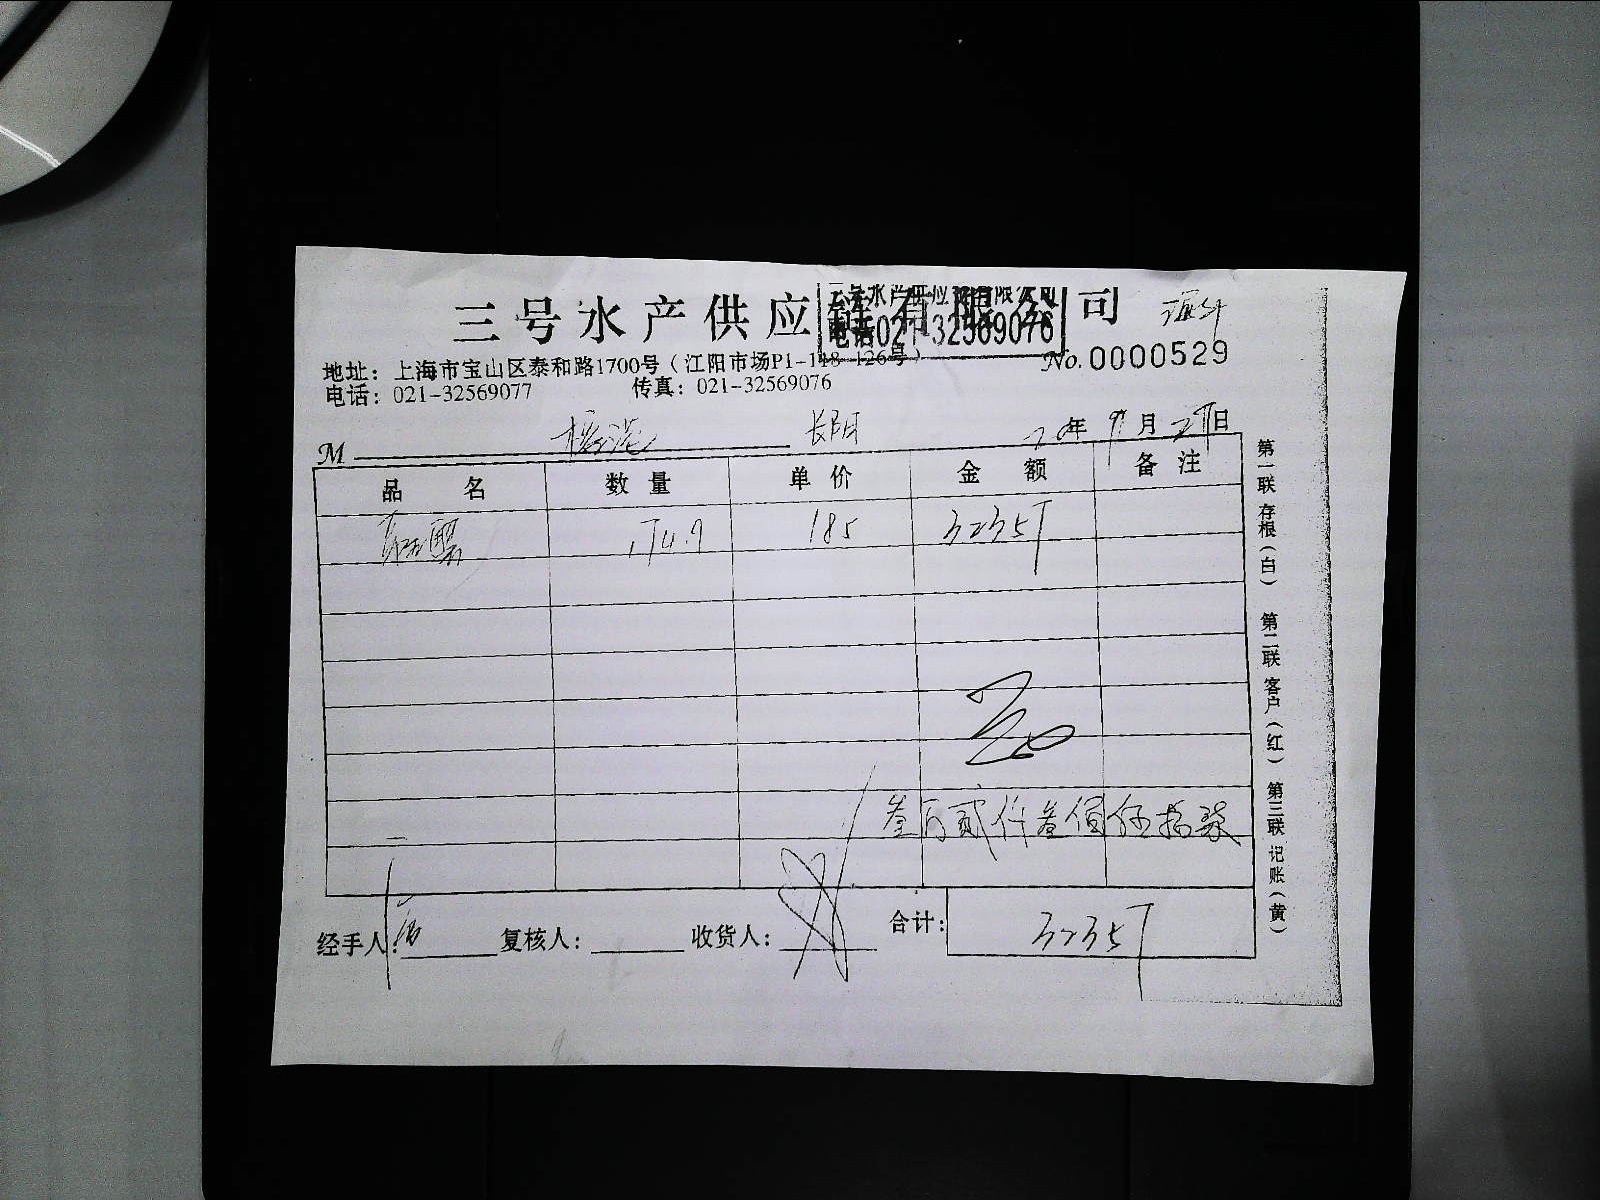 三号水产供应链有限公司
三号水产供应链有限公司
电话021-32569076
地址：上海市宝山区泰和路1700号（江阳市场P1-118-126号）
No.0000529
电话：021-32569077 传真：021-32569076
M 长阳 20年 9月 27日
品名 数量 单价 金额 备注
174.9 185 32357
叁万贰仟叁佰伍拾柒
经手人： 复核人： 收货人： 合计： 32357
第一联 存根（白） 第二联 客户（红） 第三联 记账（黄）